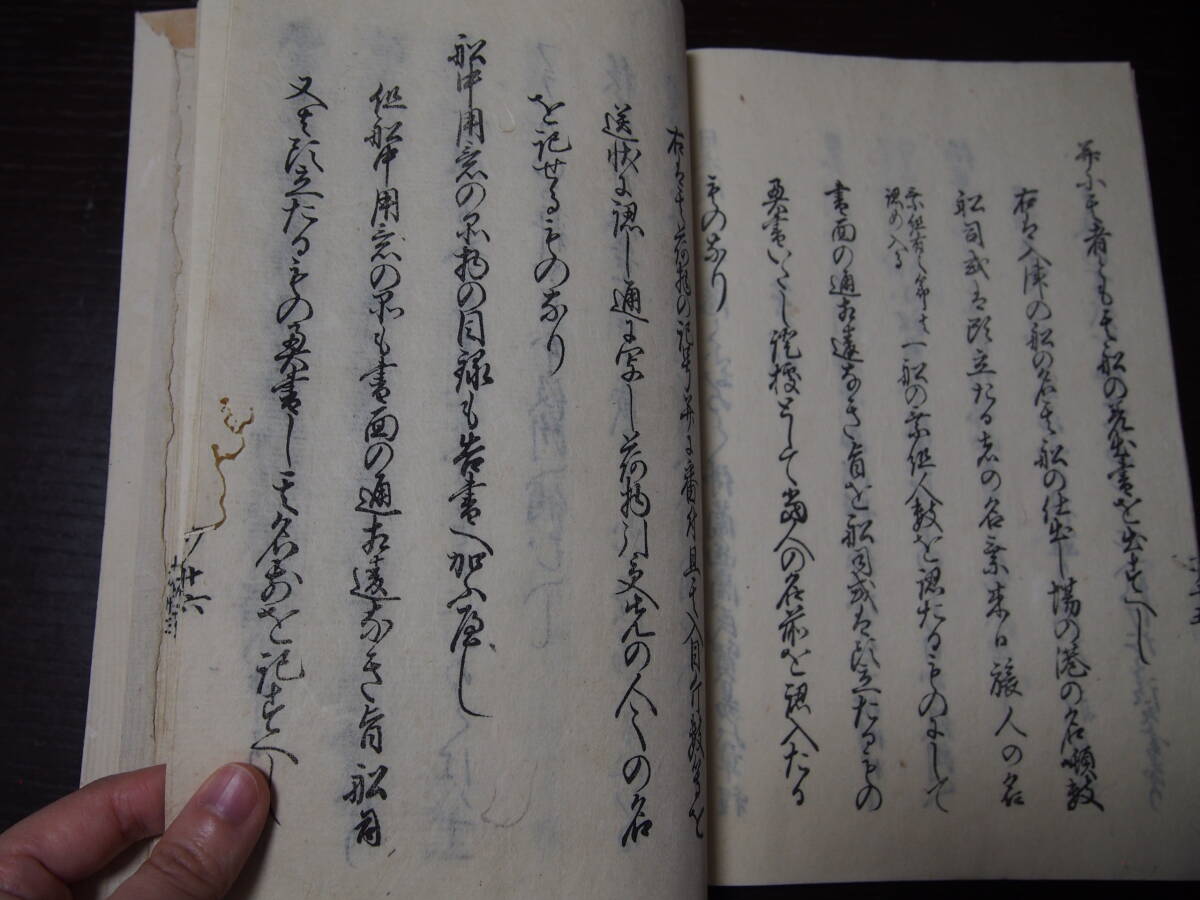 并に其者とも其船の差出書を出すへし
右は入津の船の名其船の仕出し場の港の名噸数
船司或は頭立たる者の名乗来る旅人の名
乗組有之節は
認め入る
一船の乗組人数を認たるものにして
書面の通相違なき旨を船司或は頭立たるもの
奥書いたし證拠として当人の名前を認入たる
ものなり
右は其荷物の記号并に番付且其入目斤数等を
送状に認し通に写し荷物引受先の人々の名
を記せるものなり
船中用意の品物の目録も告書へ加ふへし
但船中用意の品も書面の通相違なき旨船司
又は頭立たるもの奥書し其名前を記すへし
廿六